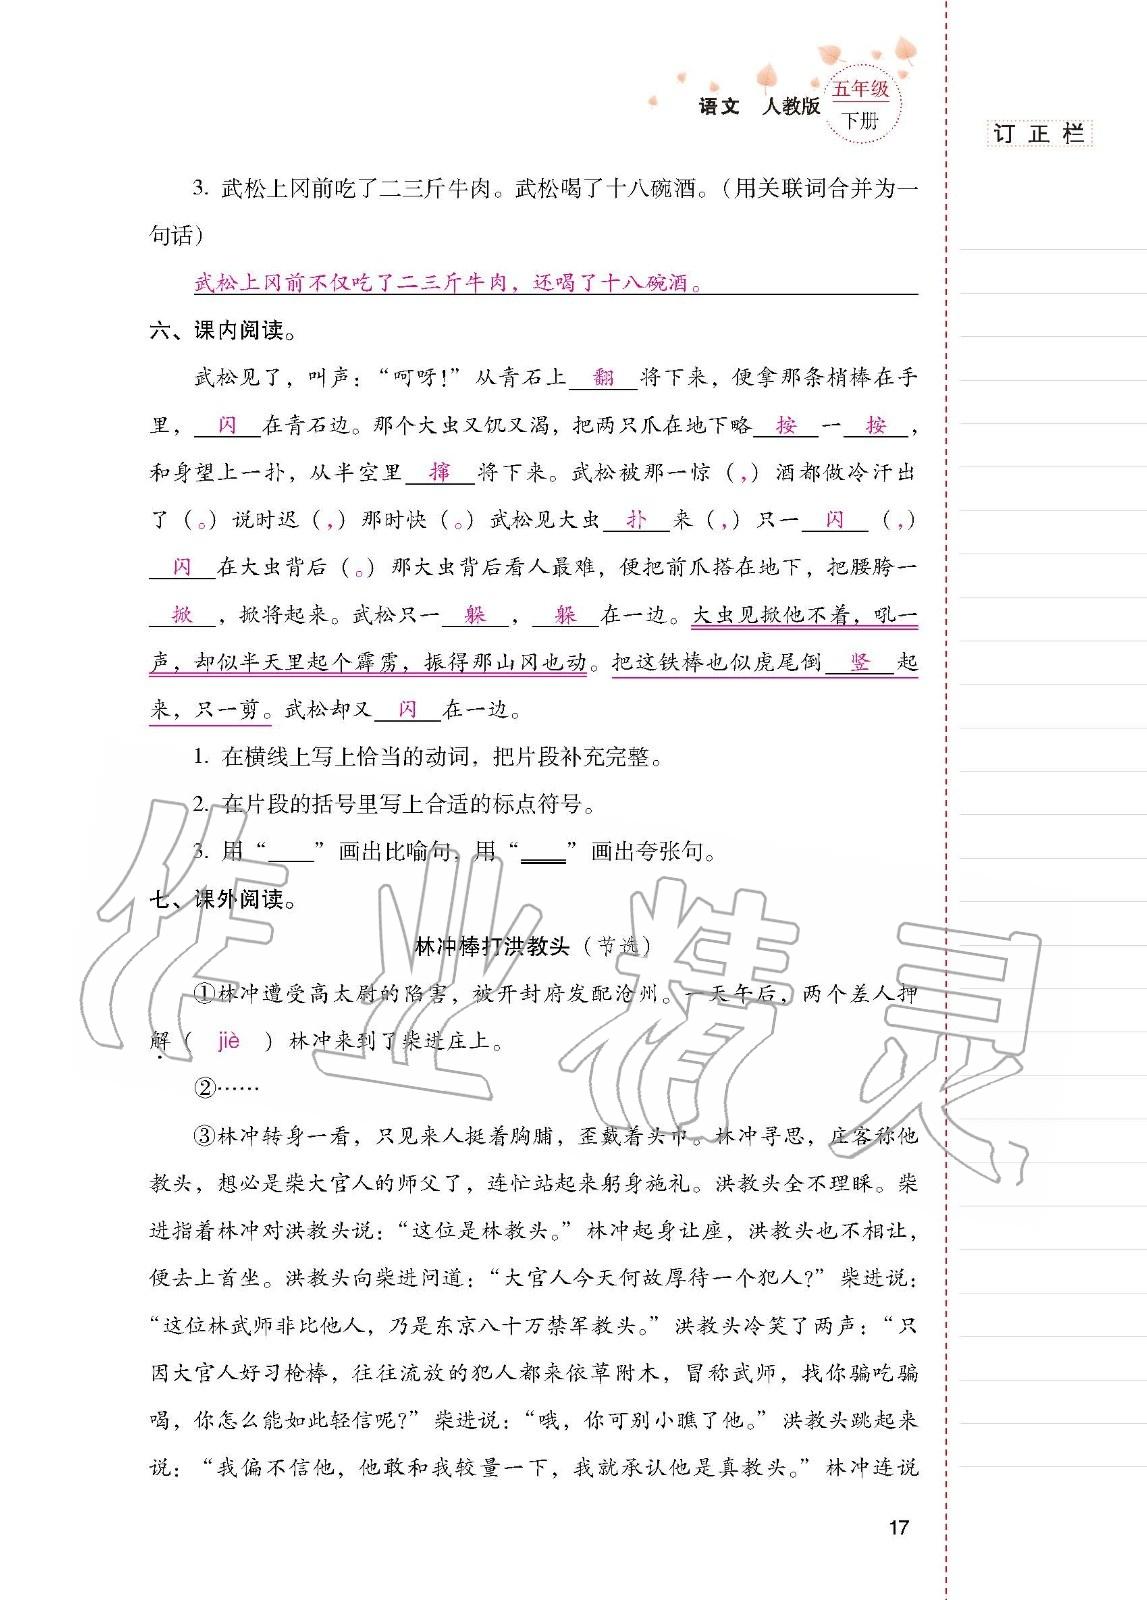 语文 人教版 五年级
下册
订正栏
3. 武松上冈前吃了二三斤牛肉。武松喝了十八碗酒。（用关联词合并为一
句话）
武松上冈前不仅吃了二三斤牛肉，还喝了十八碗酒。
六、课内阅读。
武松见了，叫声：“呵呀！”从青石上 翻 将下来，便拿那条梢棒在手
里， 闪 在青石边。那个大虫又饥又渴，把两只爪在地下略 按 一 按 ，
和身望上一扑，从半空里 撺 将下来。武松被那一惊（，）酒都做冷汗出
了（。）说时迟（，）那时快（。）武松见大虫 扑 来（，）只一 闪 （，）
闪 在大虫背后（。）那大虫背后看人最难，便把前爪搭在地下，把腰胯一
掀 ，掀将起来。武松只一 躲 ， 躲 在一边。大虫见掀他不着，吼一
声，却似半天里起个霹雳，振得那山冈也动。把这铁棒也似虎尾倒 竖 起
来，只一剪。武松却又 闪 在一边。
1. 在横线上写上恰当的动词，把片段补充完整。
2. 在片段的括号里写上合适的标点符号。
3. 用“____”画出比喻句，用“____”画出夸张句。
七、课外阅读。
林冲棒打洪教头（节选）
①林冲遭受高太尉的陷害，被开封府发配沧州。一天午后，两个差人押
解（ jiè ）林冲来到了柴进庄上。
②……
③林冲转身一看，只见来人挺着胸脯，歪戴着头巾。林冲寻思，庄客称他
教头，想必是柴大官人的师父了，连忙站起来躬身施礼。洪教头全不理睬。柴
进指着林冲对洪教头说：“这位是林教头。”林冲起身让座，洪教头也不相让，
便去上首坐。洪教头向柴进问道：“大官人今天何故厚待一个犯人？”柴进说：
“这位林武师非比他人，乃是东京八十万禁军教头。”洪教头冷笑了两声：“只
因大官人好习枪棒，往往流放的犯人都来依草附木，冒称武师，找你骗吃骗
喝，你怎么能如此轻信呢？”柴进说：“哦，你可别小瞧了他。”洪教头跳起来
说：“我偏不信他，他敢和我较量一下，我就承认他是真教头。”林冲连说
17
作业精灵